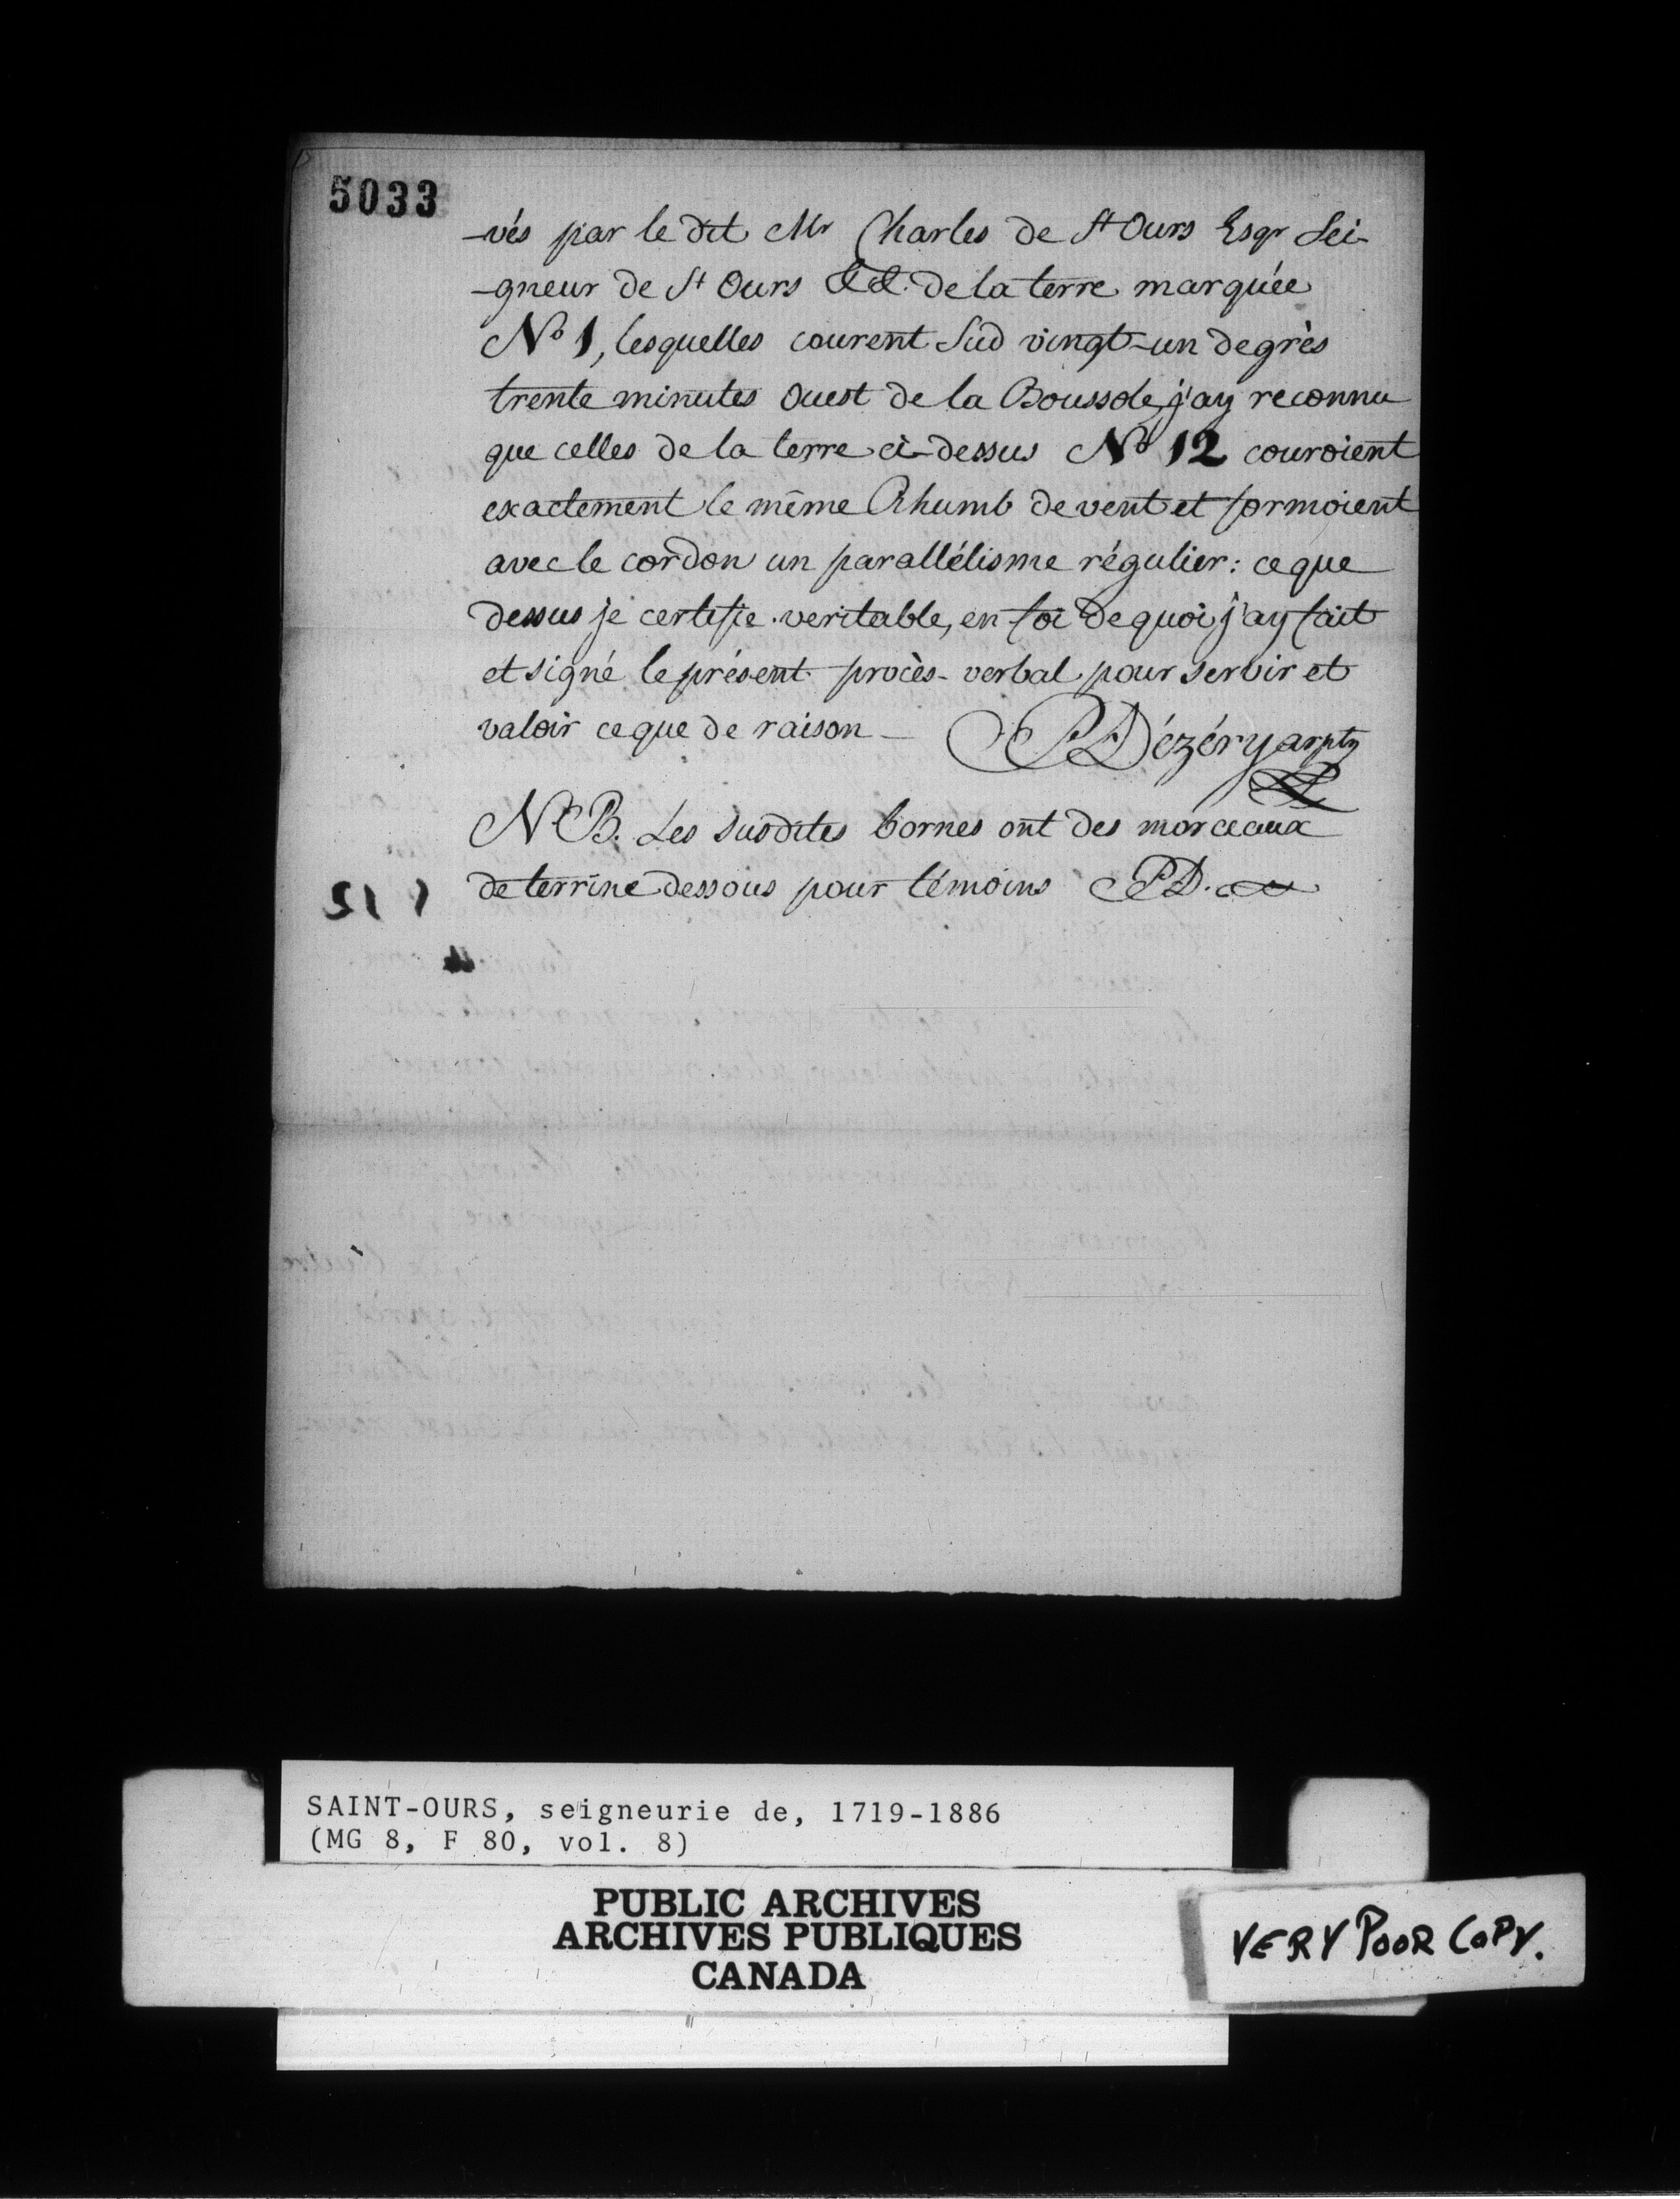 5033
-vés par le dit Mr Charles de St Ours Esqr Sei-
-gneur de St Ours &c &c. de la terre marquée
No 1, lesquelles courent Sud vingt-un degrès
trente minutes Ouest de la Boussole, j'ay reconnu
que celles de la terre ci-dessus No 12 couroient
exactement le même Rhumb de vent et formoient
avec le cordon un parallélisme régulier: ce que
dessus je certifie veritable, en foi de quoi j'ay fait
et signé le présent procès-verbal pour servir et
valoir ce que de raison - PDézéry arptr
N.B. Les susdites bornes ont des morceaux
de terrine dessous pour témoins PD.
SAINT-OURS, seigneurie de, 1719-1886
(MG 8, F 80, vol. 8)
PUBLIC ARCHIVES
ARCHIVES PUBLIQUES
CANADA
VERY POOR COPY.